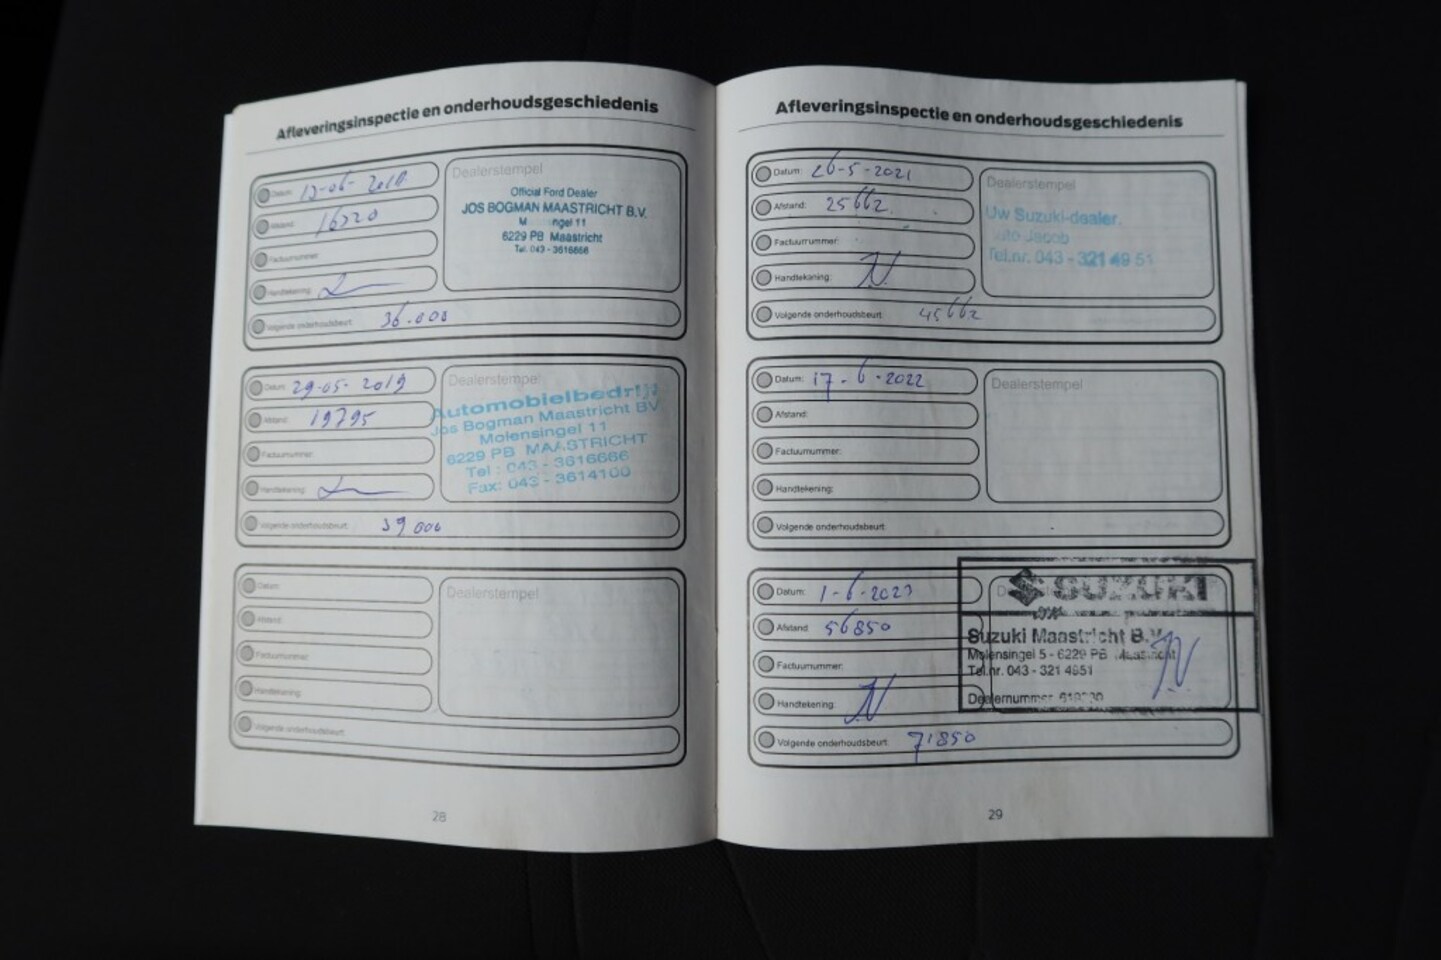 Afleveringsinspectie en onderhoudsgeschiedenis
Datum: 13-06-2018
Afstand: 16320
Factuurnummer:
Handtekening:
Volgende onderhoudsbeurt: 36.000
Dealerstempel
Official Ford Dealer
JOS BOGMAN MAASTRICHT B.V.
M ngel 11
6229 PB Maastricht
Tel. 043 - 3616666
Datum: 29-05-2019
Afstand: 19795
Factuurnummer:
Handtekening:
Volgende onderhoudsbeurt: 39000
Dealerstempel
Automobielbedrijf
Jos Bogman Maastricht BV
Molensingel 11
6229 PB MAASTRICHT
Tel : 043 - 3616666
Fax: 043 - 3614100
Datum:
Afstand:
Factuurnummer:
Handtekening:
Volgende onderhoudsbeurt:
Dealerstempel
28
Afleveringsinspectie en onderhoudsgeschiedenis
Datum: 26-5-2021
Afstand: 25662
Factuurnummer:
Handtekening:
Volgende onderhoudsbeurt: 45662
Dealerstempel
Uw Suzuki-dealer.
Auto Jacob
Tel.nr. 043 - 321 49 51
Datum: 17-6-2022
Afstand:
Factuurnummer:
Handtekening:
Volgende onderhoudsbeurt:
Dealerstempel
Datum: 1-6-2023
Afstand: 56850
Factuurnummer:
Handtekening:
Volgende onderhoudsbeurt: 71850
SUZUKI
Suzuki Maastricht B.V.
Molensingel 5 - 6229 PB Maastricht
Tel.nr. 043 - 321 4951
Dealernummer
29